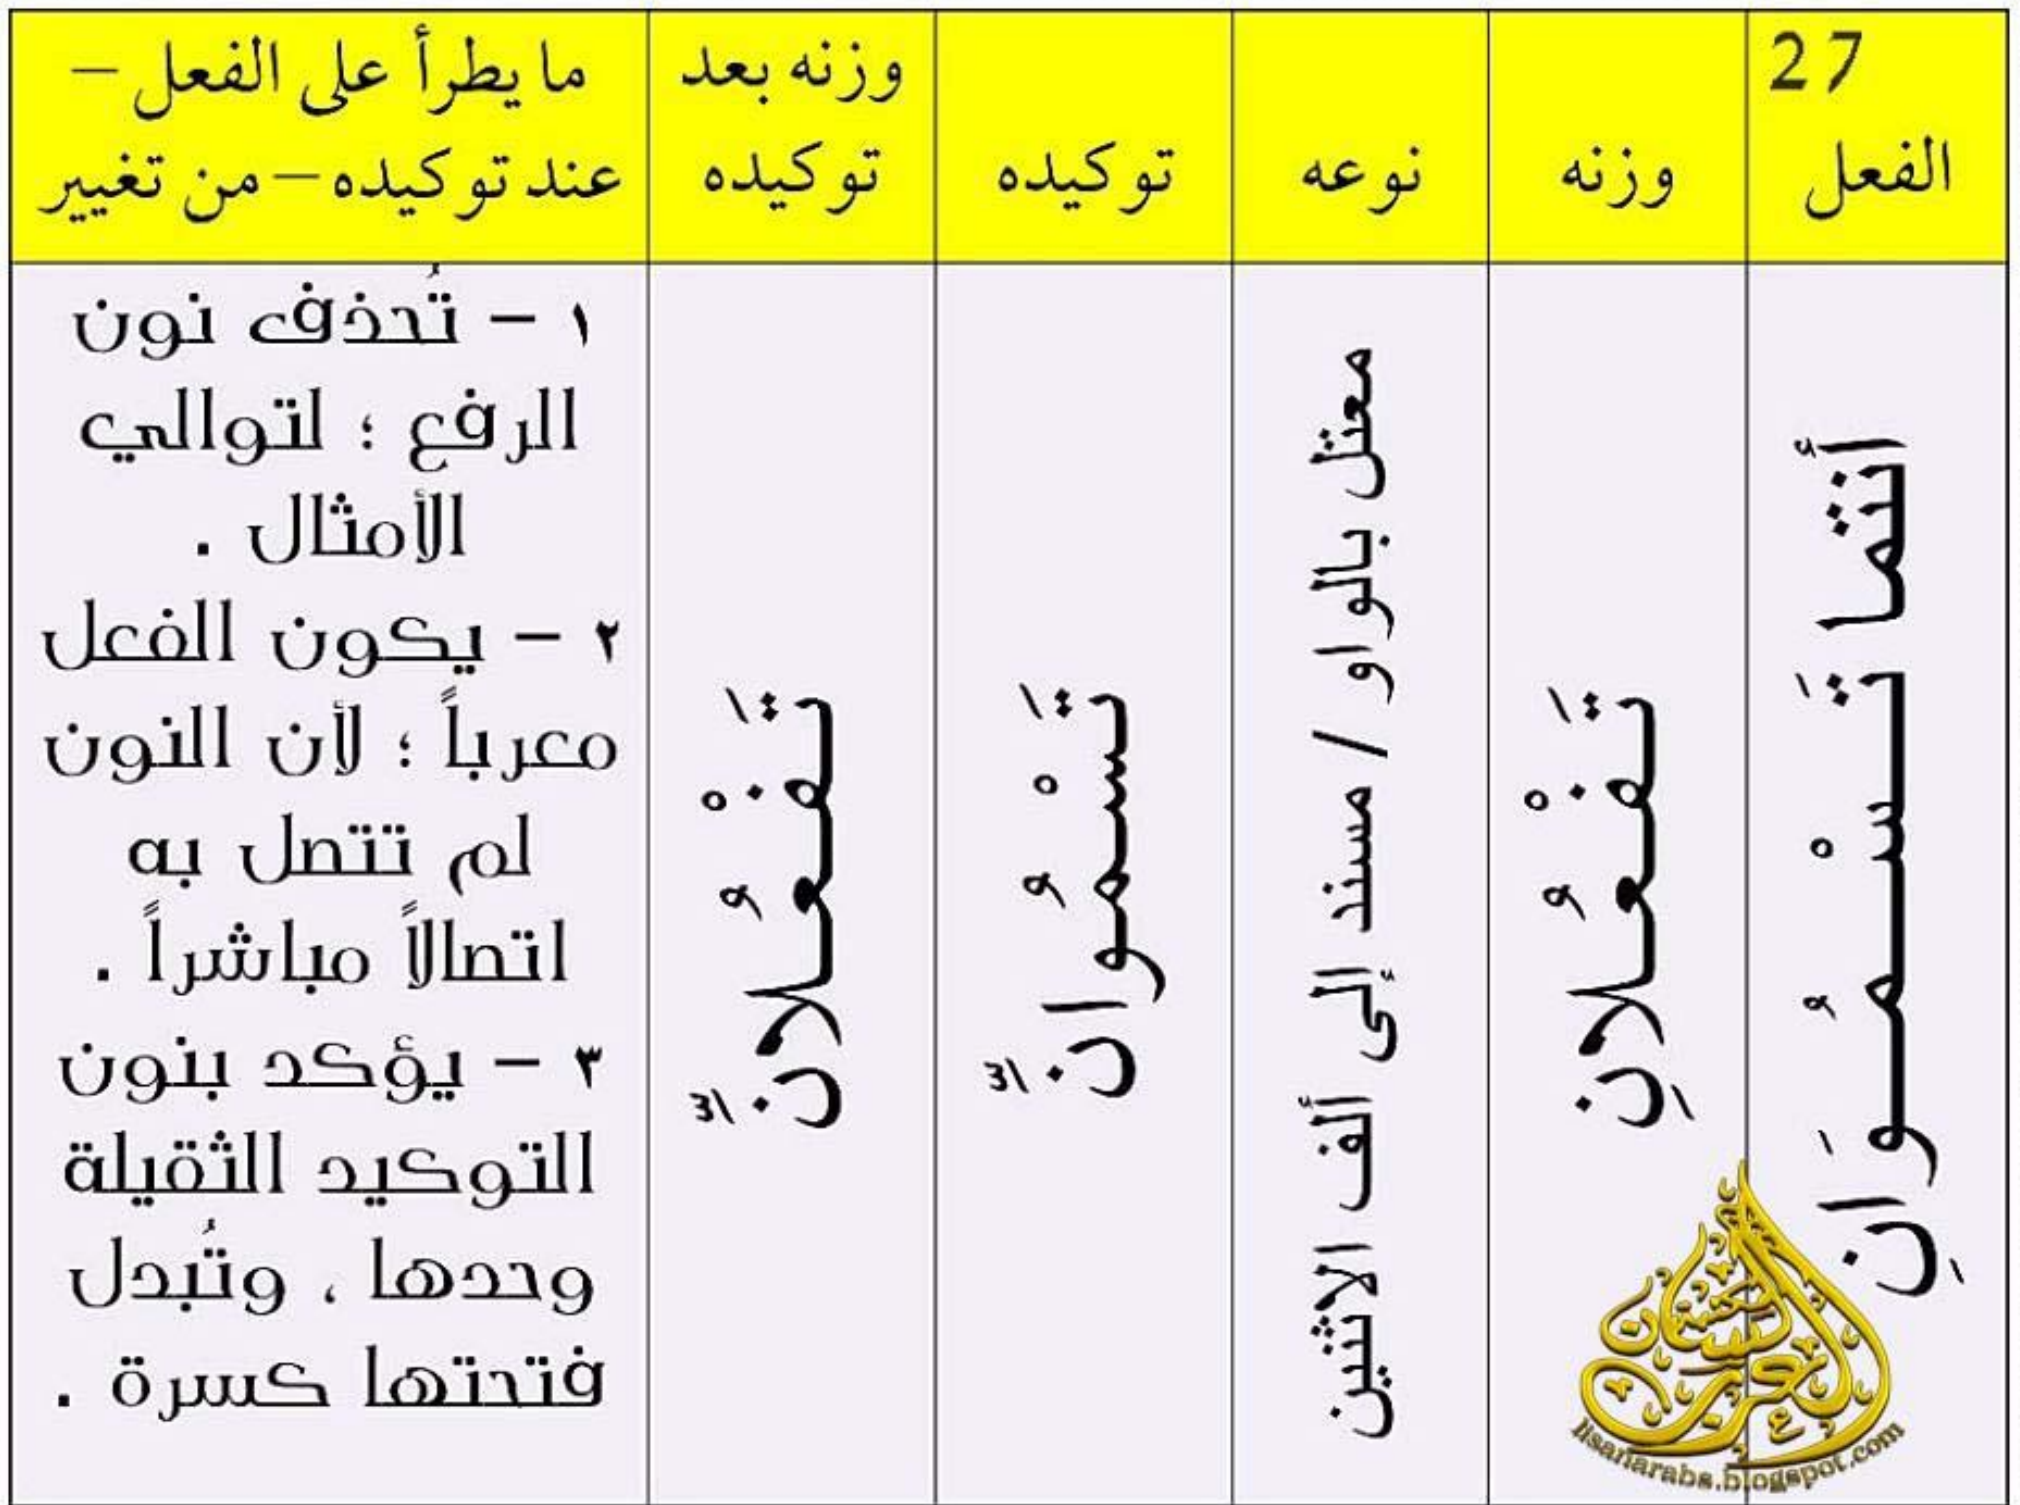 27
الفعل
وزنه
نوعه
توكيده
وزنه بعد
توكيده
ما يطرأ على الفعل –
عند توكيده – من تغيير
أنتما تَـسْـمُـوَانِ
تَـفْـعُـلانِ
معتل بالواو / مسند إلى ألف الاثنين
تَـسْـمُـوانِّ
تَـفْـعُـلانِّ
١ – تُحذف نون
الرفع ؛ لتوالي
الأمثال .
٢ – يكون الفعل
معرباً ؛ لأن النون
لم تتصل به
اتصالاً مباشراً .
٣ – يؤكد بنون
التوكيد الثقيلة
وحدها ، وتُبدل
فتحتها كسرة .
مكتبة لسان العرب
lisanarabs.blogspot.com